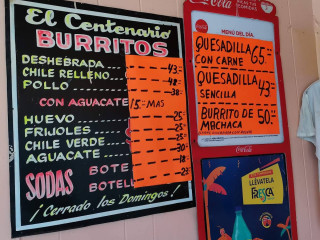 El Centenario
BURRITOS
DESHEBRADA 43
CHILE RELLENO 43
POLLO 48
CON AGUACATE 15 MAS
HUEVO 25
FRIJOLES 25
CHILE VERDE 25
AGUACATE 30
SODAS BOTE 18
BOTELL
¡Cerrado los Domingos!
Coca-Cola
MENÚ DEL DÍA
QUESADILLA 65
CON CARNE
QUESADILLA 43
SENCILLA
BURRITO DE 50
MACHACA
Coca-Cola
LLÉVATELA
FRESCA